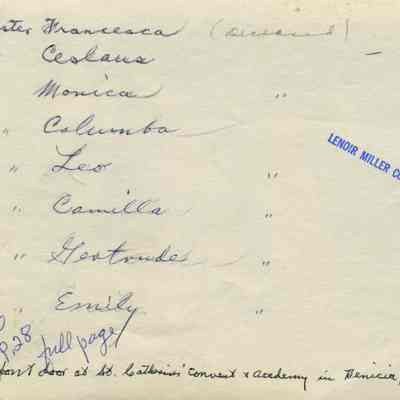 ster Francesca (Deceased)
Ceslaus
Monica "
" Columba
" Leo "
" Camilla "
" Gertrude "
" Emily "
LENOIR MILLER CO
p. 28
full page
front door at St. Catherine's Convent & Academy in Benicia,